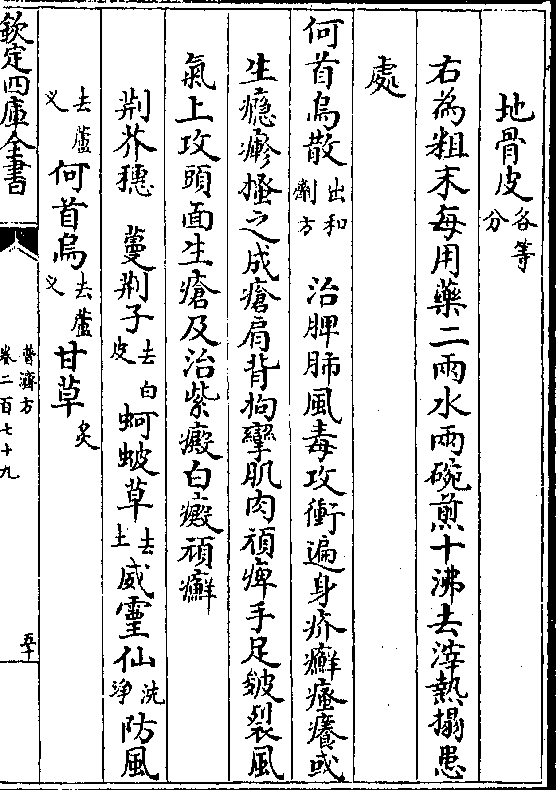 地骨皮各等分
右為粗末每用藥二兩水兩碗煎十沸去滓熱搨患
處
何首烏散出和劑方　治脾肺風毒攻衝遍身疥癬瘙癢或
生癮疹搔之成瘡肩背拘攣肌肉頑痺手足皴裂風
氣上攻頭面生瘡及治紫癜白癜頑癬
荆芥穗　蔓荆子去白皮　蚵蚾草去土　威靈仙洗淨　防風
去蘆叉　何首烏去蘆叉　甘草炙
欽定四庫全書
普濟方
卷二百七十九
五十